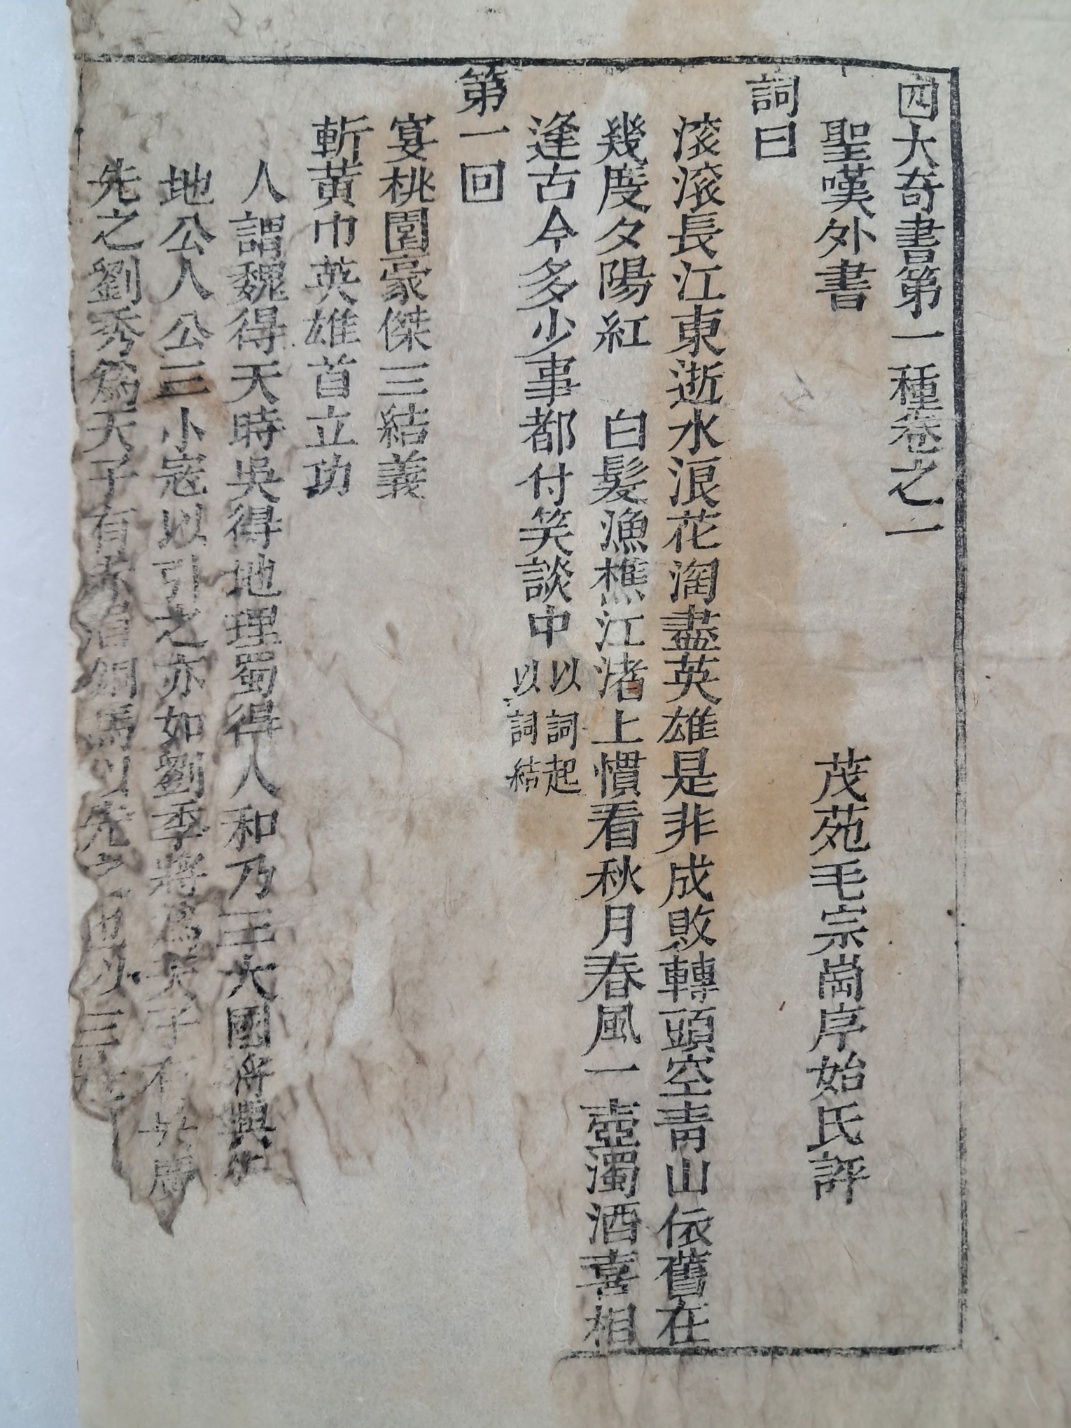 四大奇書第一種卷之一
聖嘆外書
茂苑毛宗崗序始氏評
詞曰
滚滚長江東逝水浪花淘盡英雄是非成敗轉頭空青山依舊在
幾度夕陽紅 白髮漁樵江渚上慣看秋月春風一壺濁酒喜相
逢古今多少事都付笑談中
以詞起
以詞結
第一回
宴桃園豪傑三結義
斬黃巾英雄首立功
人謂魏得天時吳得地理蜀得人和乃三大國將興
地公人公三小寇以引之亦如劉季將爲天子有
先之劉秀爲天子有 以先之也以三